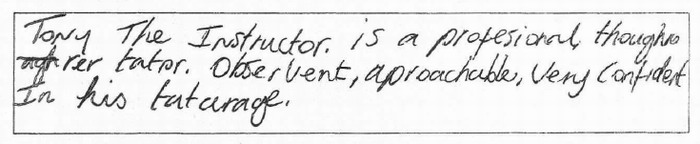 Tony The Instructor. is a profesional, though
rer tator. Observent, aproachable, Very Confident
In his taturage.